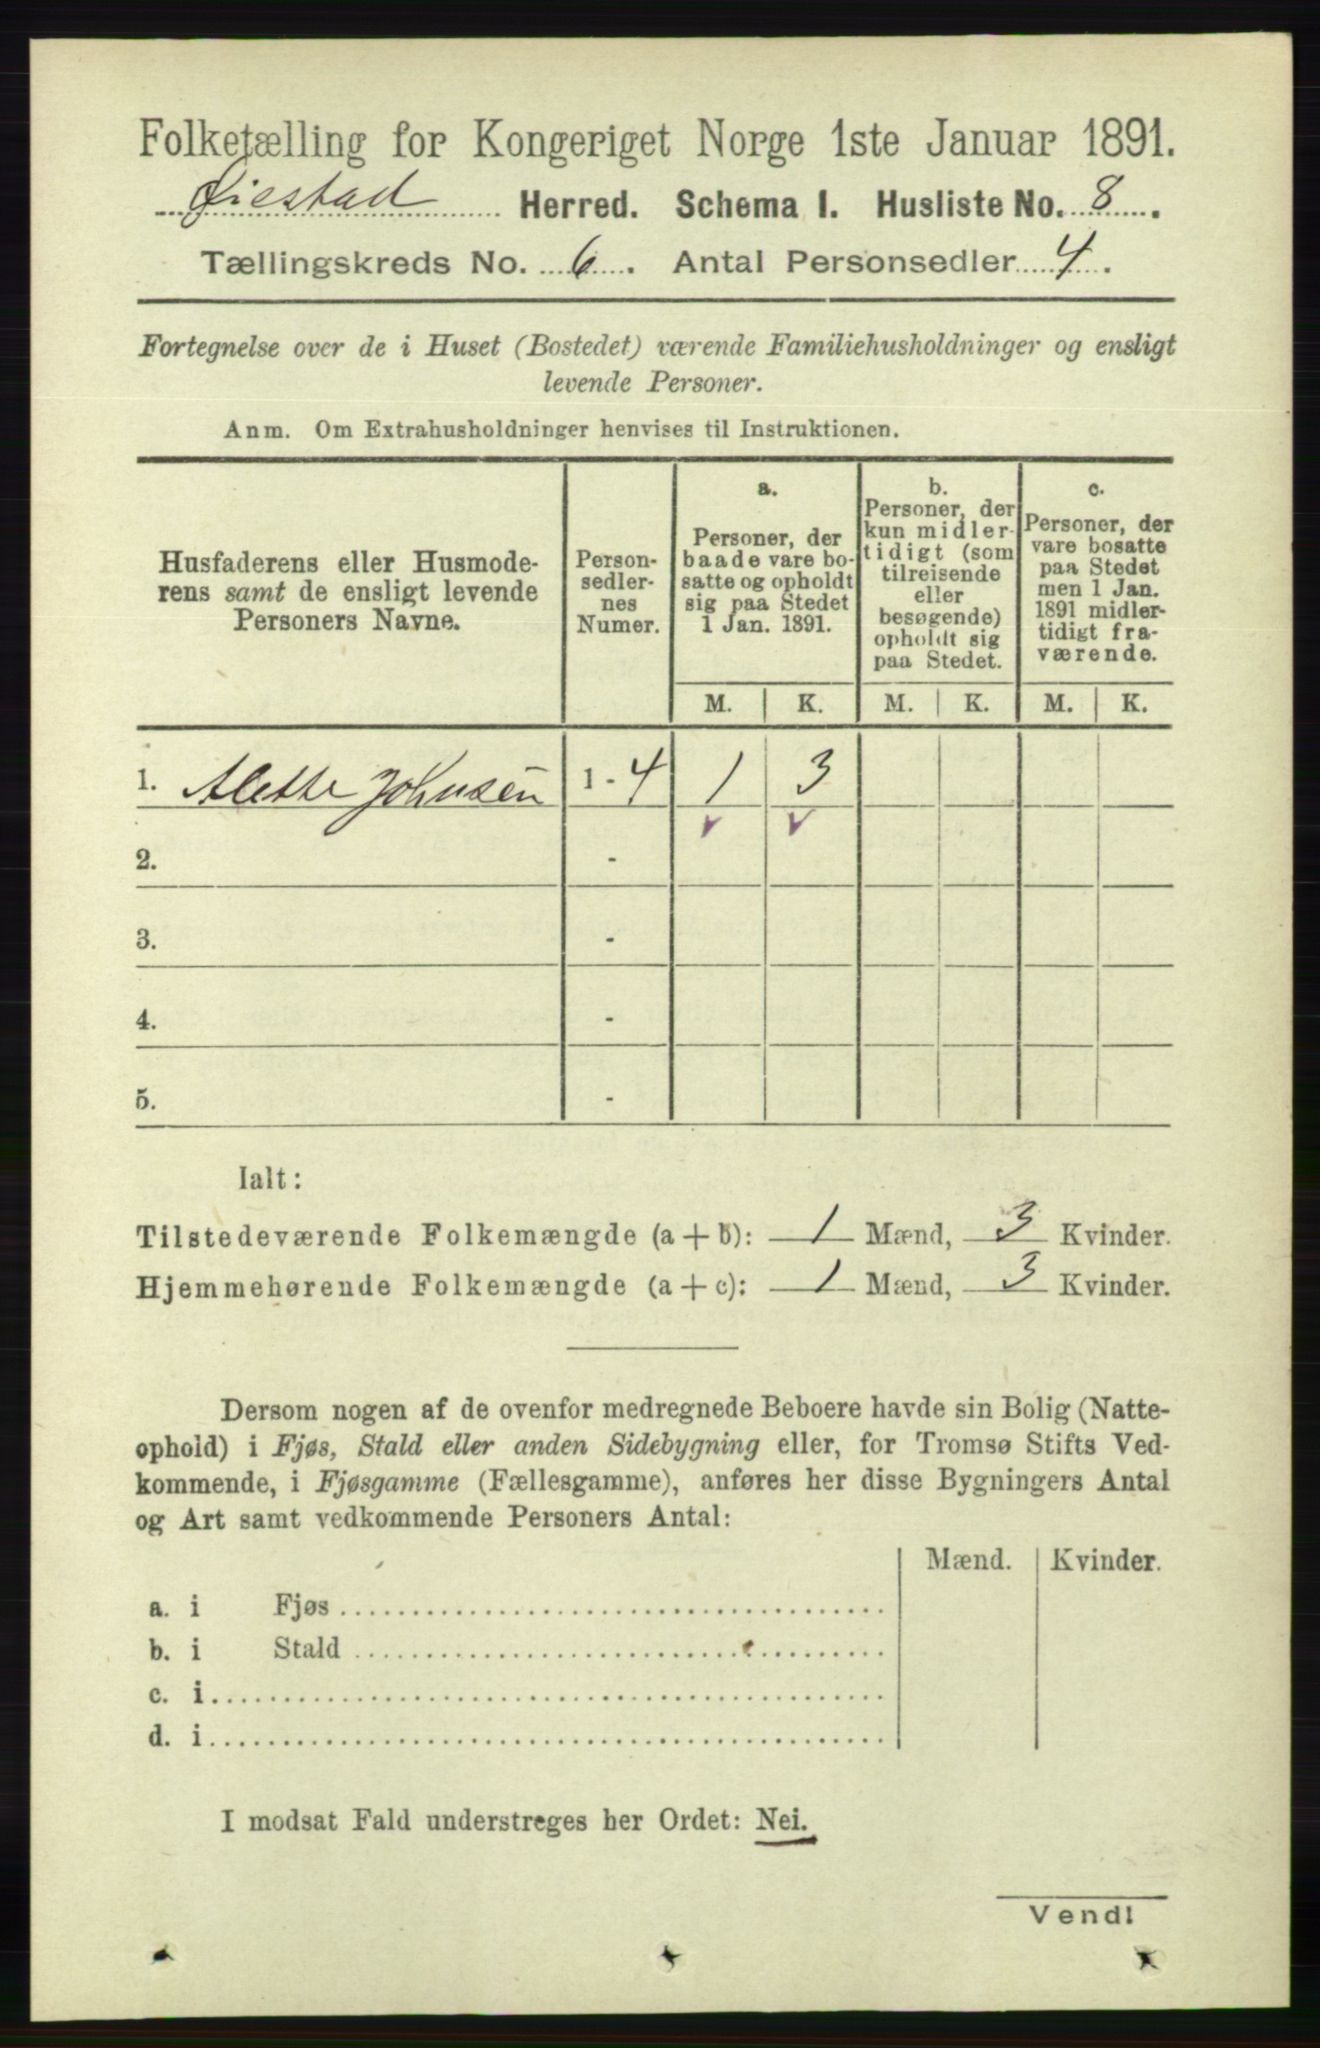 Folketælling for Kongeriget Norge 1ste Januar 1891.
Øiestad Herred. Schema I. Husliste No. 8.
Tællingskreds No. 6. Antal Personsedler 4.
Fortegnelse over de i Huset (Bostedet) værende Familiehusholdninger og ensligt
levende Personer.
Anm. Om Extrahusholdninger henvises til Instruktionen.
Husfaderens eller Husmode-
rens samt de ensligt levende
Personers Navne.
Person-
sedler-
nes
Numer.
a.
Personer, der
baade vare bo-
satte og opholdt
sig paa Stedet
1 Jan. 1891.
b.
Personer, der
kun midler-
tidigt (som
tilreisende
eller
besøgende)
opholdt sig
paa Stedet.
c.
Personer, der
vare bosatte
paa Stedet
men 1 Jan.
1891 midler-
tidigt fra-
værende.
M. K. M. K. M. K.
1. Alette Johnsen 1 - 4 1 3
2. -
3. -
4. -
5. -
Ialt:
Tilstedeværende Folkemængde (a + b): 1 Mænd, 3 Kvinder.
Hjemmehørende Folkemængde (a + c): 1 Mænd, 3 Kvinder.
Dersom nogen af de ovenfor medregnede Beboere havde sin Bolig (Natte-
ophold) i Fjøs, Stald eller anden Sidebygning eller, for Tromsø Stifts Ved-
kommende, i Fjøsgamme (Fællesgamme), anføres her disse Bygningers Antal
og Art samt vedkommende Personers Antal:
Mænd. Kvinder.
a. i Fjøs
b. i Stald
c. i
d. i
I modsat Fald understreges her Ordet: Nei.
Vend!